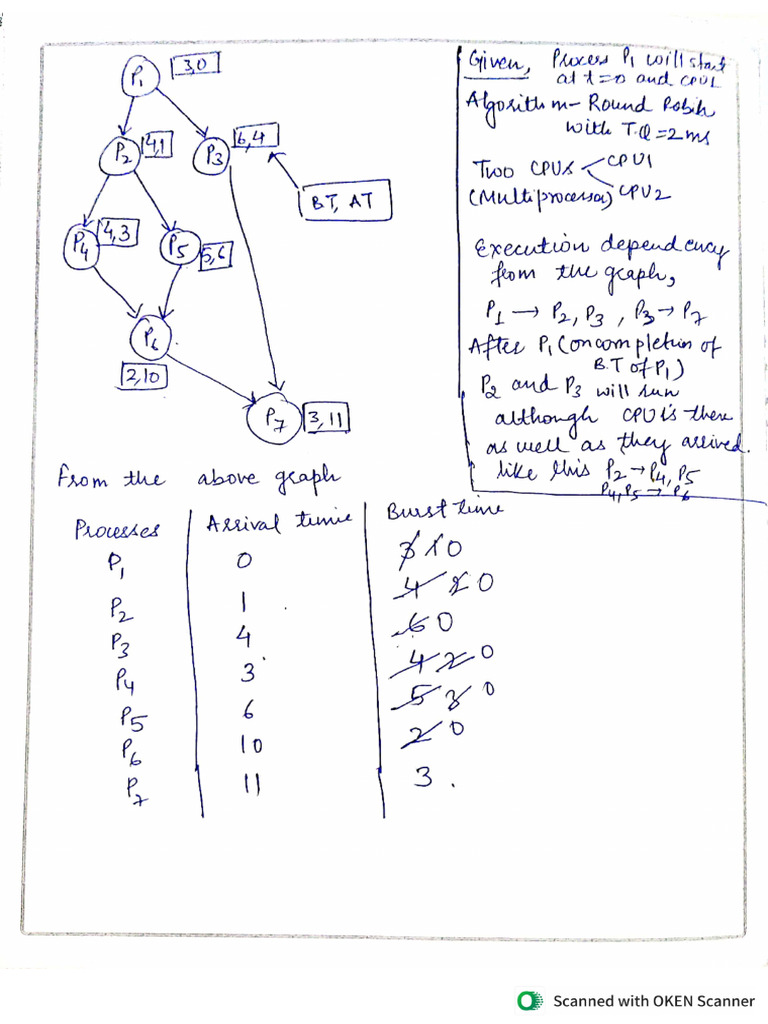 P1 3,0
P2 4,1
P3 6,4
BT, AT
P4 4,3
P5 5,6
P6
2,10
P7 3,11
Given, Process P1 will start
at t=0 and CPU1
Algorithm- Round Robin
with T.Q=2ms
Two CPUs CPU1
(Multiprocessor) CPU2
Execution dependency
from the graph,
P1 → P2, P3 , P3 → P7
After P1 (on completion of
B.T of P1)
P2 and P3 will run
although CPU is there
as well as they arrived.
like this P2 → P4, P5
P4, P5 → P6
From the above graph
Processes Arrival time Burst time
P1 0 3 1 0
P2 1 4 2 0
P3 4 6 0
P4 3 4 2 0
P5 6 5 3 0
P6 10 2 0
P7 11 3 .
Scanned with OKEN Scanner